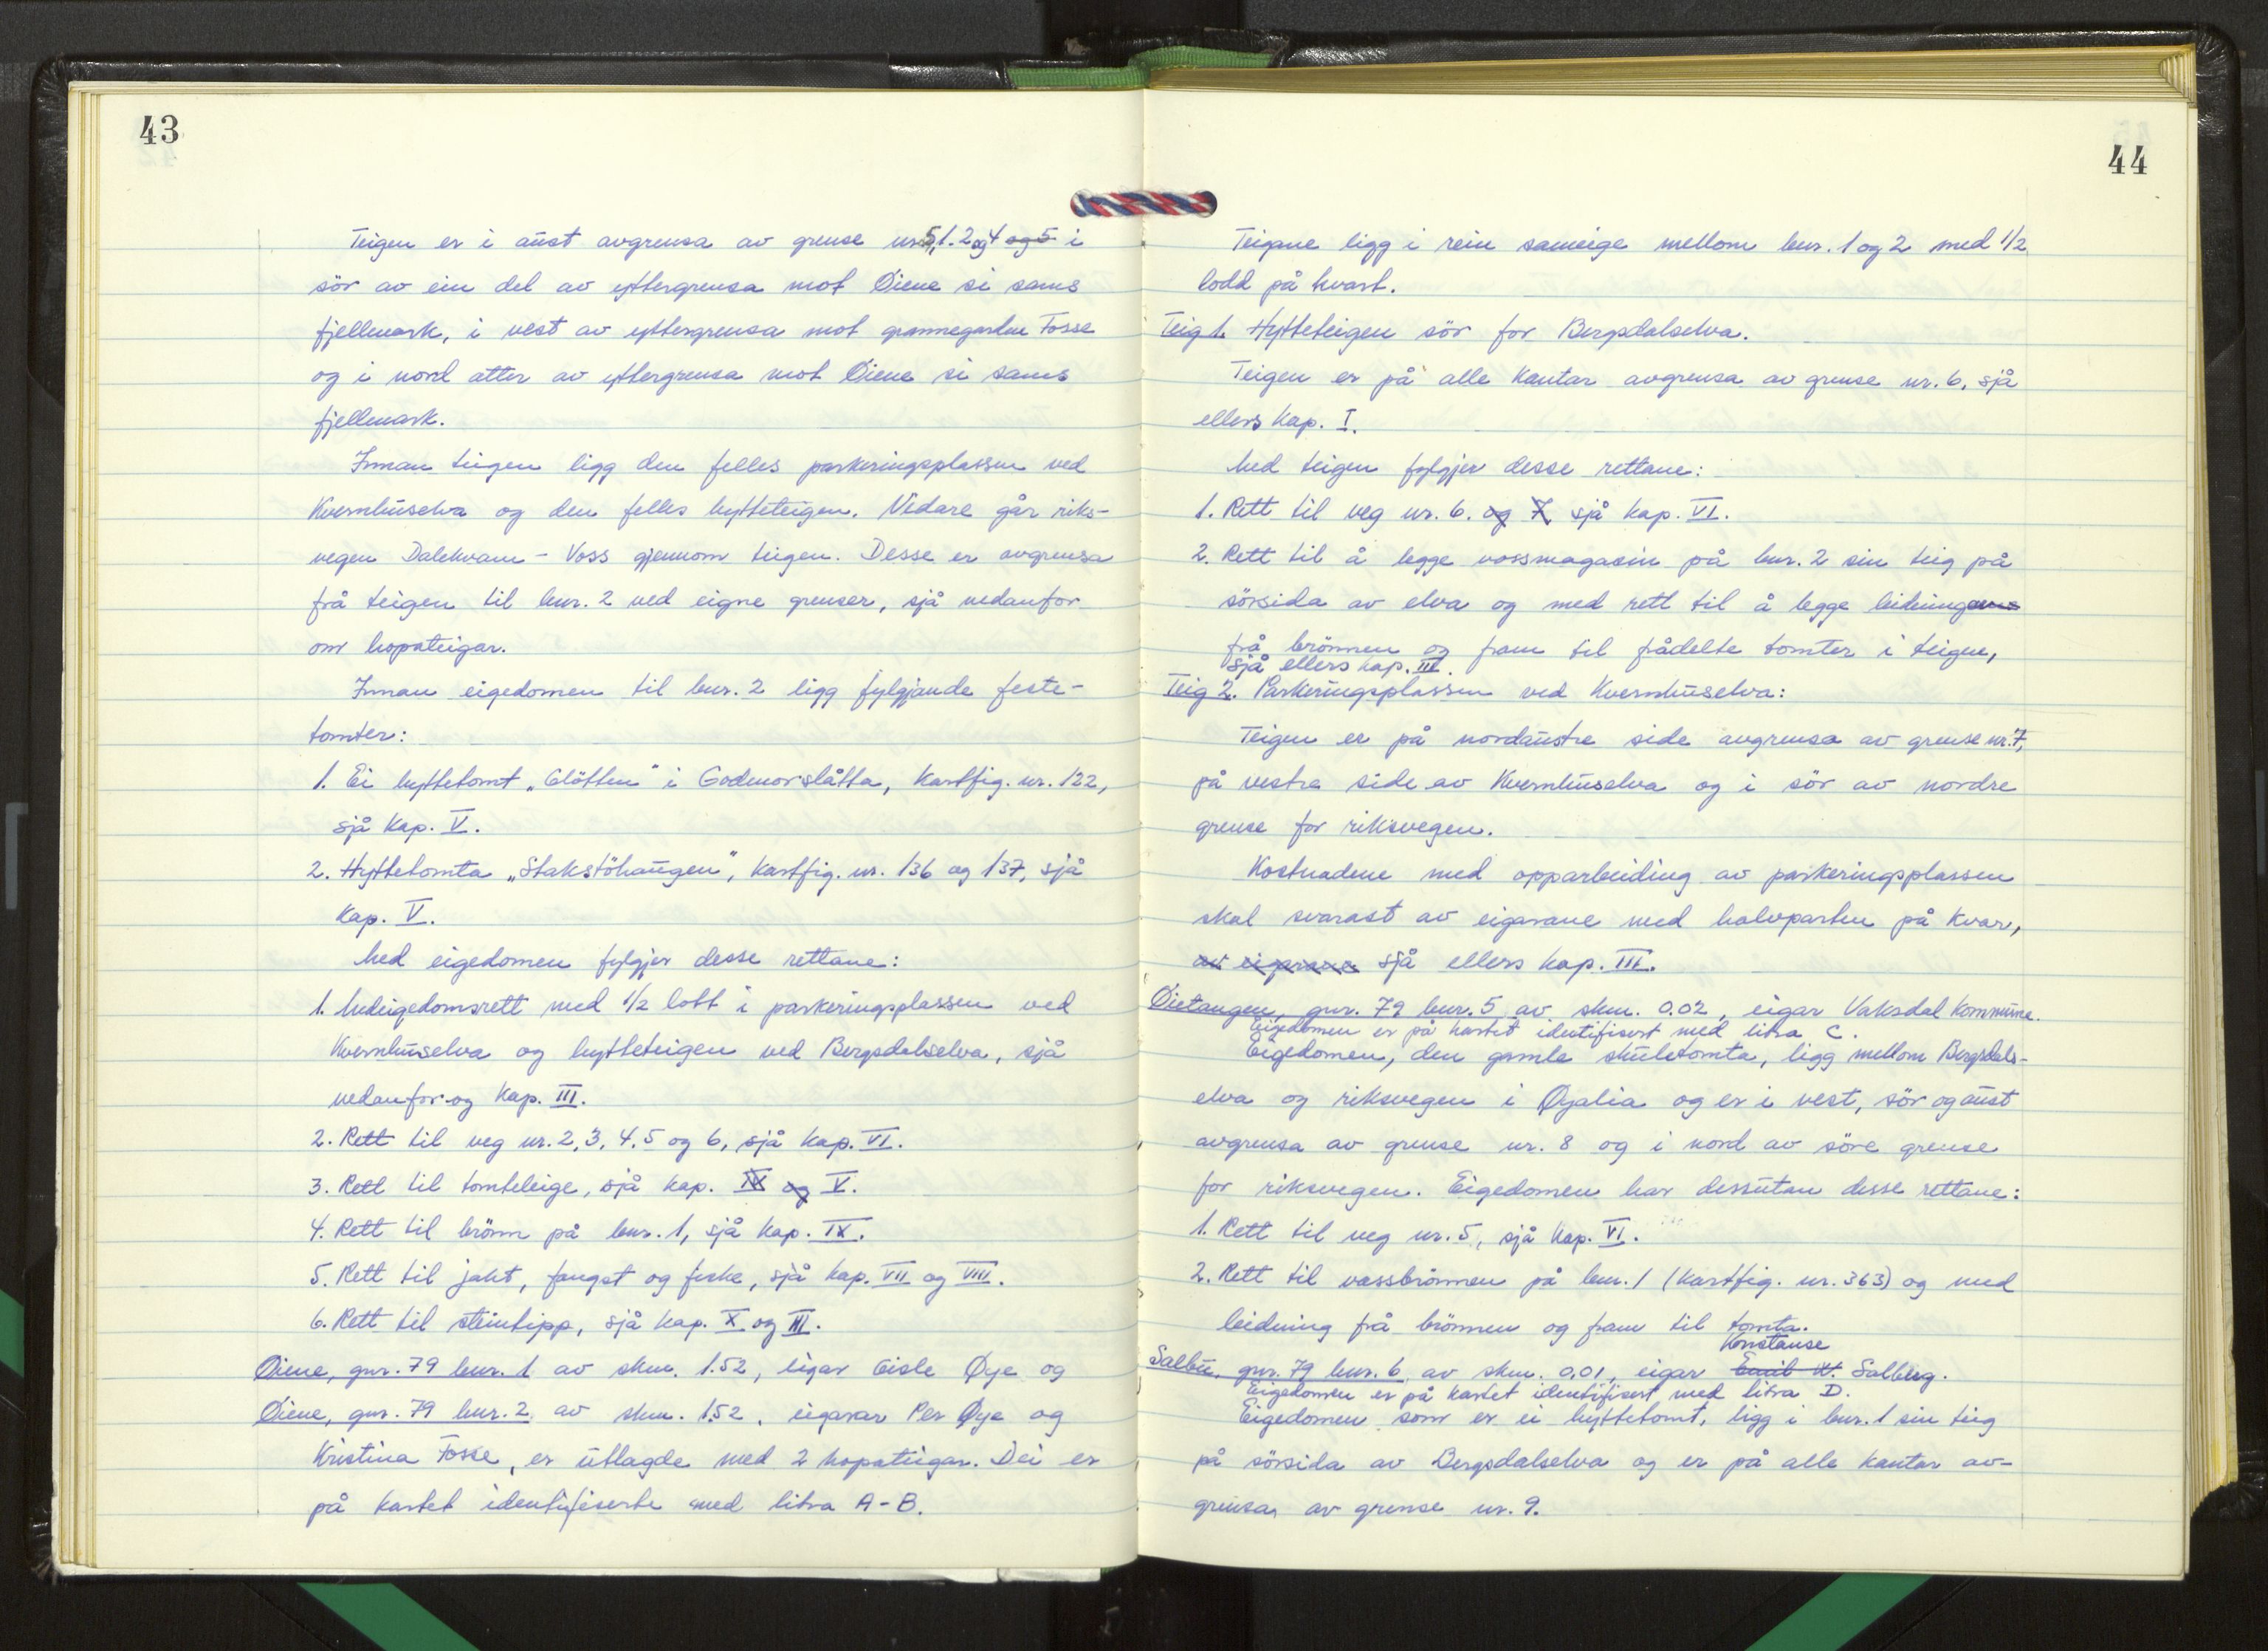 43
Teigen er i aust avgrensa av grense nr. 5, 1. 2 og 4 og 5 i
sör av ein del av yttergrensa mot Öiene si sams
fjellmark, i vest av yttergrensa mot grannegarden Fosse
og i nord atter av yttergrensa mot Öiene si sams
fjellmark.
Innan teigen ligg den felles parkeringsplassen ved
Kvernhuselva og den felles hytteteigen. Vidare går riks-
vegen Dalekvam - Voss gjennom teigen. Desse er avgrensa
frå teigen til bnr. 2 ved eigne grenser, sjå nedanfor
om hopateigar.
Innan eigedomen til bnr. 2 ligg fylgjande feste-
tomter:
1. Ei hyttetomt „Glötten" i Godmorslåtta, kartfig. nr. 122,
sjå kap. V.
2. Hyttetomta „Stakstöhaugen", kartfig. nr. 136 og 137, sjå
kap. V.
Med eigedomen fylgjer desse rettane:
1. Medeigedomsrett med 1/2 lott i parkeringsplassen ved
Kvernhuselva og hytteteigen ved Bergsdalselva, sjå
nedanfor og kap. III.
2. Rett til veg nr. 2, 3, 4, 5 og 6, sjå kap. VI.
3. Rett til tomteleige, sjå kap. IX og V.
4. Rett til brönn på bnr. 1, sjå kap. IX.
5. Rett til jakt, fangst og fiske, sjå kap. VII og VIII.
6. Rett til steintipp, sjå kap. X og III.
Öiene, gnr. 79 bnr. 1 av skm. 1.52, eigar Gisle Øye og
Öiene, gnr. 79 bnr. 2 av skm. 1.52, eigarar Per Øye og
Kristina Fosse, er utlagde med 2 hopateigar. Dei er
på kartet identifiserte med litra A - B.
44
Teigane ligg i rein sameige mellom bnr. 1 og 2 med 1/2
lodd på kvart.
Teig 1. Hytteteigen sör for Bergsdalselva.
Teigen er på alle kantar avgrensa av grense nr. 6, sjå
ellers kap. I.
Med teigen fylgjer desse rettane:
1. Rett til veg nr. 6. og 7, sjå kap. VI.
2. Rett til å legge vassmagasin på bnr. 2 sin teig på
sörsida av elva og med rett til å legge leidningane
frå brönnen og fram til frådelte tomter i teigen,
sjå ellers kap. III.
Teig 2. Parkeringsplassen ved Kvernhuselva:
Teigen er på nordaustre side avgrensa av grense nr. 7,
på vestre side av Kvernhuselva og i sör av nordre
grense for riksvegen.
Kostnadene med opparbeiding av parkeringsplassen
skal svarast av eigarane med halvparten på kvar,
av eigarane sjå ellers kap. III.
Öietangen, gnr. 79 bnr. 5 av skm. 0.02, eigar Vaksdal Kommune.
Eigedomen er på kartet identifisert med litra C.
Eigedomen, den gamle skuletomta, ligg mellom Bergsdals-
elva og riksvegen i Øyalia og er i vest, sör og aust
avgrensa av grense nr. 8 og i nord av söre grense
for riksvegen. Eigedomen har dessutan desse rettane:
1. Rett til veg nr. 5, sjå kap. VI.
2. Rett til vassbrönnen på bnr. 1 (kartfig. nr. 363) og med
leidning frå brönnen og fram til tomta.
Konstanse
Salbu, gnr. 79 bnr. 6 av skm. 0.01, eigar Emil W. Salberg.
Eigedomen er på kartet identifisert med litra D.
Eigedomen som er ei hyttetomt, ligg i bnr. 1 sin teig
på sörsida av Bergsdalselva og er på alle kantar av-
grensa av grense nr. 9.